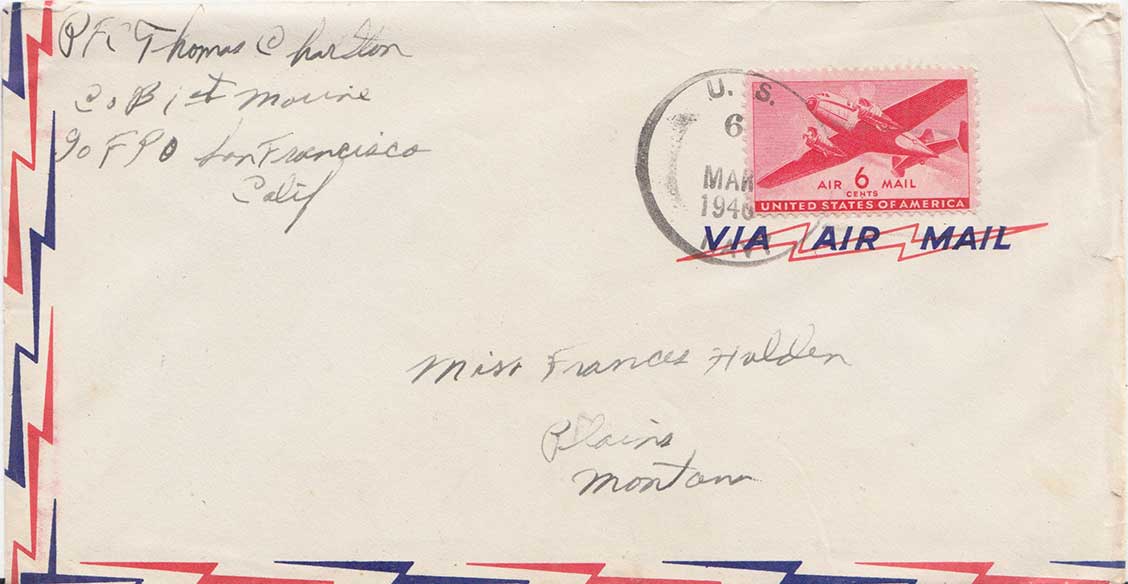 PFC Thomas Charlton
Co B 1st Marine
℅ FPO San Francisco
Calif
U. S.
6
MAR
1946
NAVY
AIR 6 MAIL
CENTS
UNITED STATES OF AMERICA
VIA AIR MAIL
Miss Frances Holden
Plains
Montana